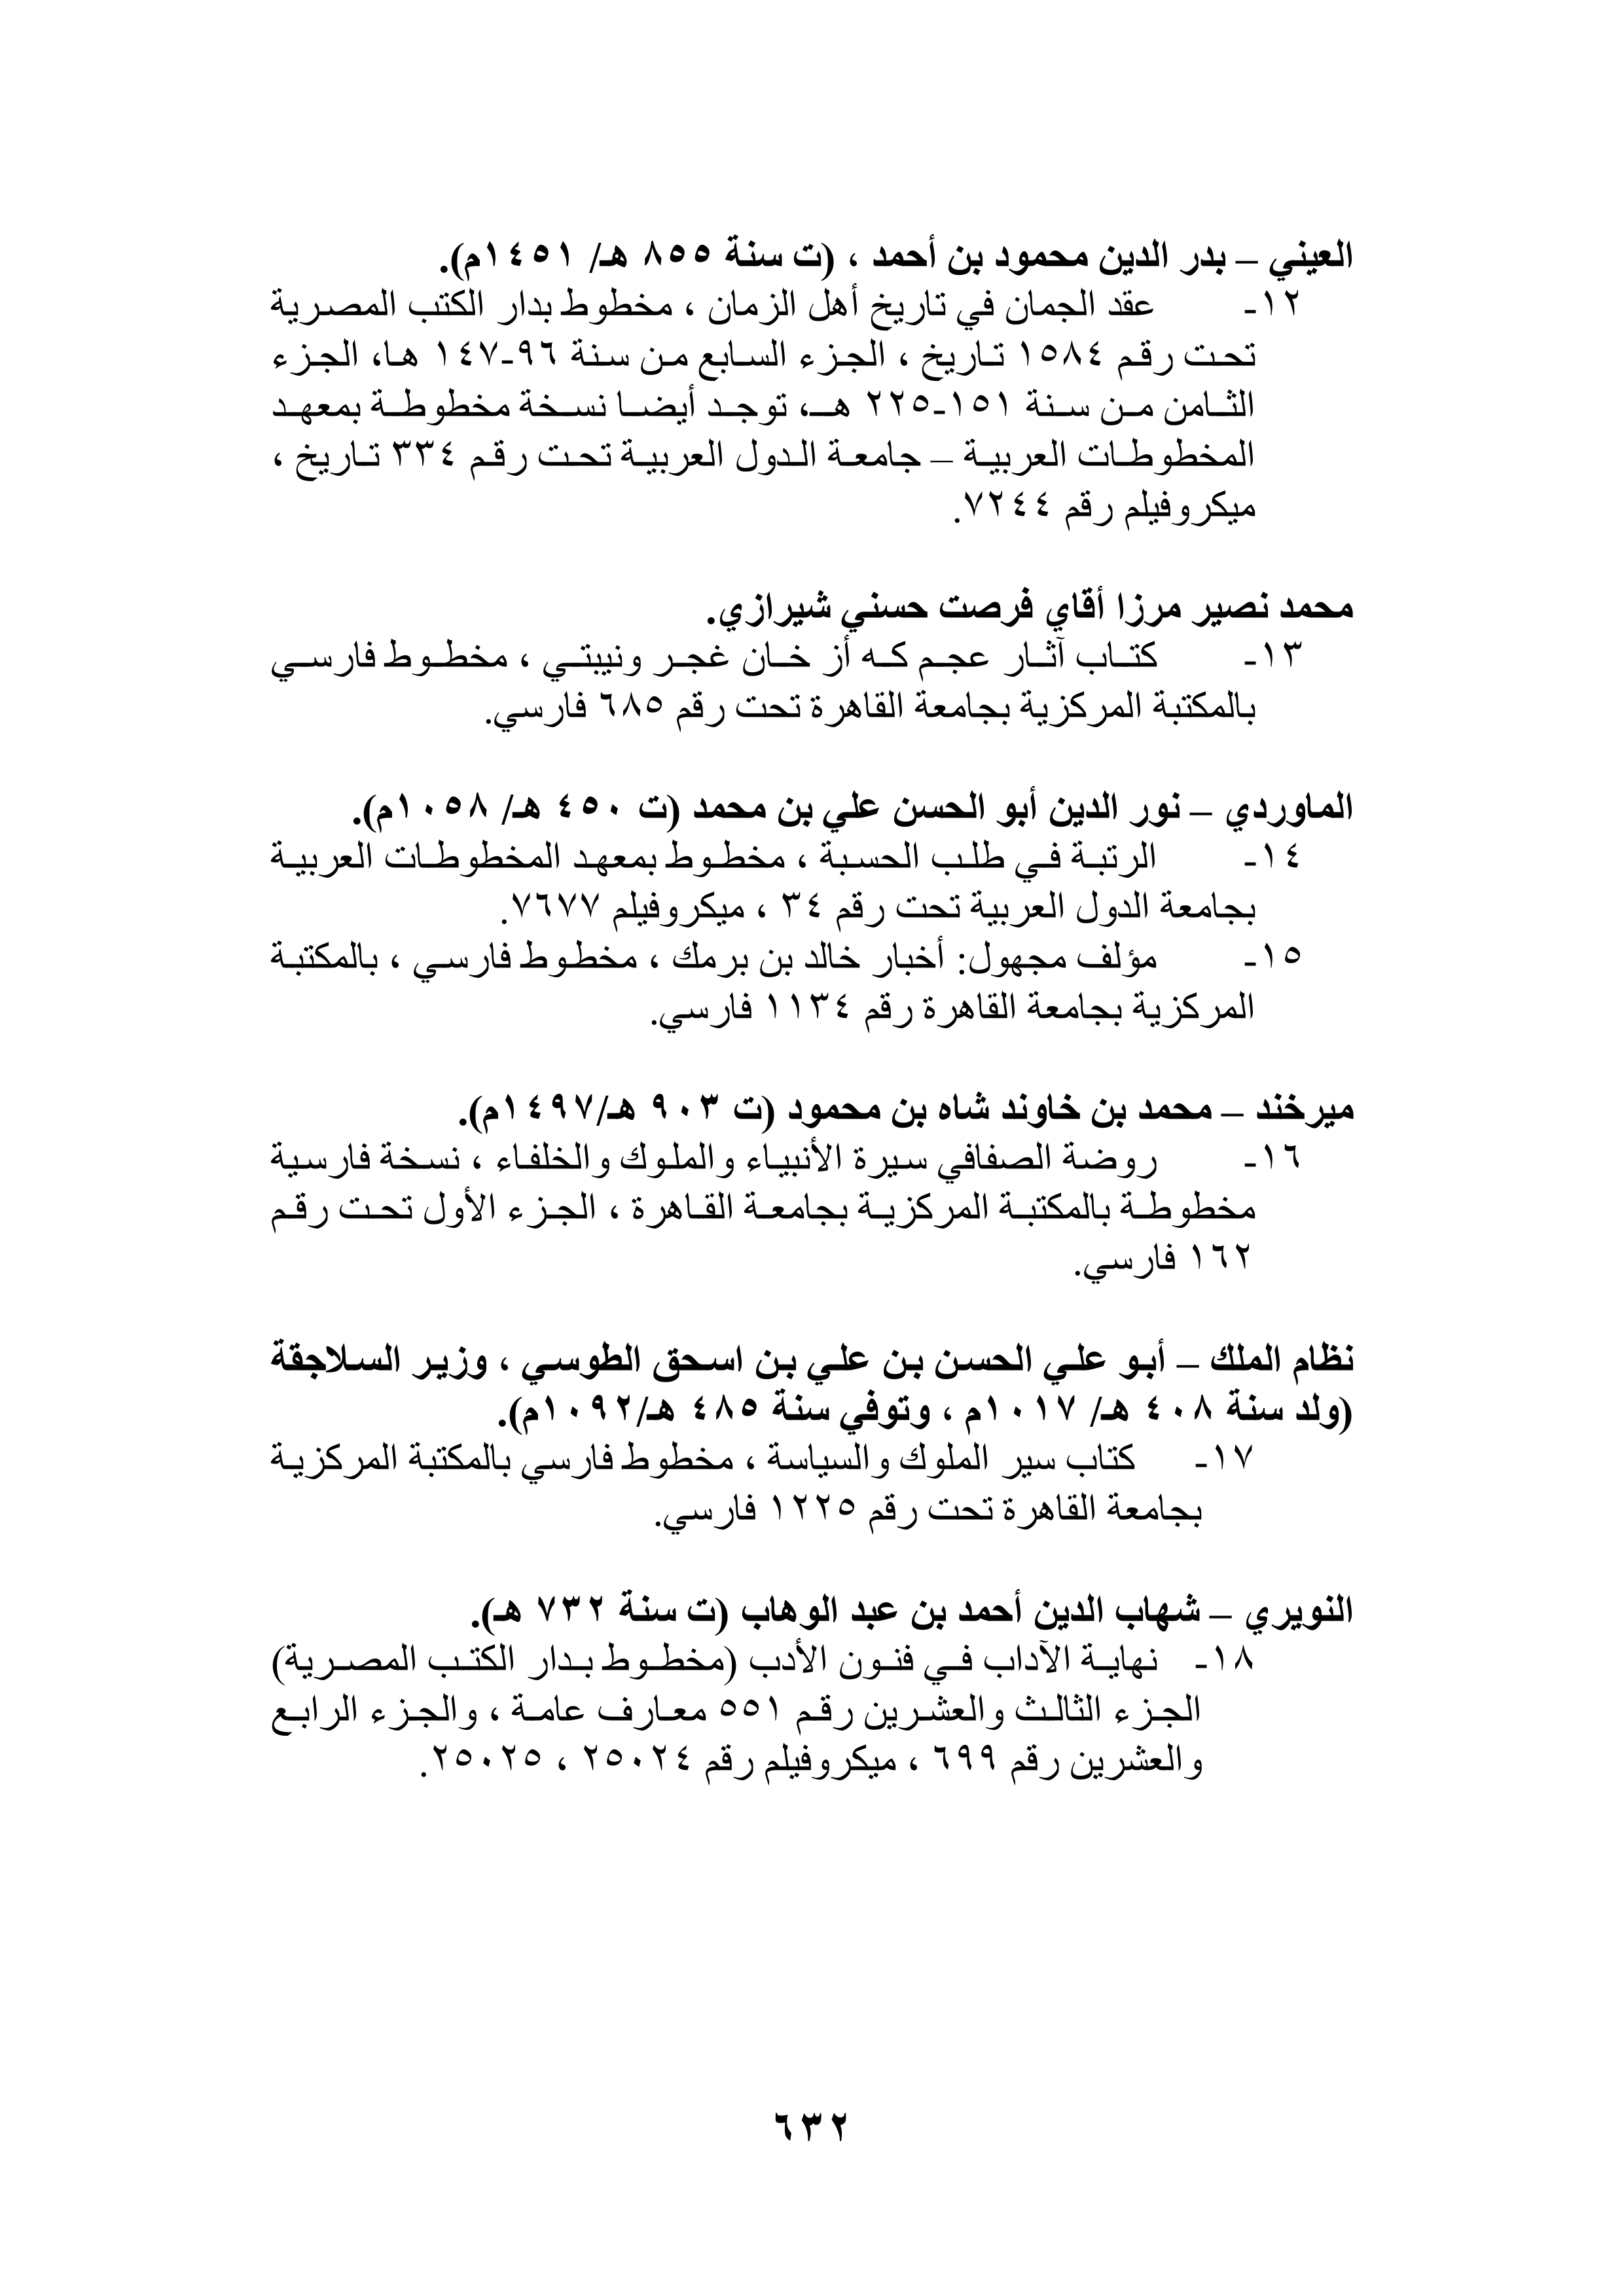 العيني – بدر الدين محمود بن أحمد ، (ت سنة ٨٥٥ هـ/ ١٤٥١م).
١٢- عقد الجمان في تاريخ أهل الزمان ، مخطوط بدار الكتب المصرية
تحت رقم ١٥٨٤ تاريخ ، الجزء السابع من سنة ٩٦-١٤٧ هـا، الجزء
الثامن من سنة ١٥١-٢٢٥ هـ، توجد أيضا نسخة مخطوطة بمعهد
المخطوطات العربية – جامعة الدول العربية تحت رقم ٣٣٤ تاريخ ،
ميكروفيلم رقم ٧٢٤٤.
محمد نصير مرزا أقاي فرصت حسني شيرازي.
١٣- كتاب آثار عجم كه أز خان غجر ونيبتي ، مخطوط فارسي
بالمكتبة المركزية بجامعة القاهرة تحت رقم ٦٨٥ فارسي.
الماوردي – نور الدين أبو الحسن علي بن محمد (ت ٤٥٠ هـ/ ١٠٥٨م).
١٤- الرتبة في طلب الحسبة ، مخطوط بمعهد المخطوطات العربية
بجامعة الدول العربية تحت رقم ٣٤ ، ميكروفيلم ٧٦٧٧.
١٥- مؤلف مجهول: أخبار خالد بن برمك ، مخطوط فارسي ، بالمكتبة
المركزية بجامعة القاهرة رقم ١١٣٤ فارسي.
ميرخند – محمد بن خاوند شاه بن محمود (ت ٩٠٣ هـ/١٤٩٧م).
١٦- روضة الصفافي سيرة الأنبياء والملوك والخلفاء ، نسخة فارسية
مخطوطة بالمكتبة المركزية بجامعة القاهرة ، الجزء الأول تحت رقم
١٦٢ فارسي.
نظام الملك – أبو علي الحسن بن علي بن اسحق الطوسي ، وزير السلاجقة
(ولد سنة ٤٠٨ هـ/ ١٠١٧م ، وتوفي سنة ٤٨٥ هـ/١٠٩٢م).
١٧- كتاب سير الملوك والسياسة ، مخطوط فارسي بالمكتبة المركزية
بجامعة القاهرة تحت رقم ١٢٢٥ فارسي.
النويري – شهاب الدين أحمد بن عبد الوهاب (ت سنة ٧٣٢ هـ).
١٨- نهاية الآداب في فنون الأدب (مخطوط بدار الكتب المصرية)
الجزء الثالث والعشرين رقم ٥٥١ معارف عامة ، والجزء الرابع
والعشرين رقم ٦٩٩ ، ميكروفيلم رقم ٢٥٠٢٤ ، ٢٥٠٢٥.
٦٣٢